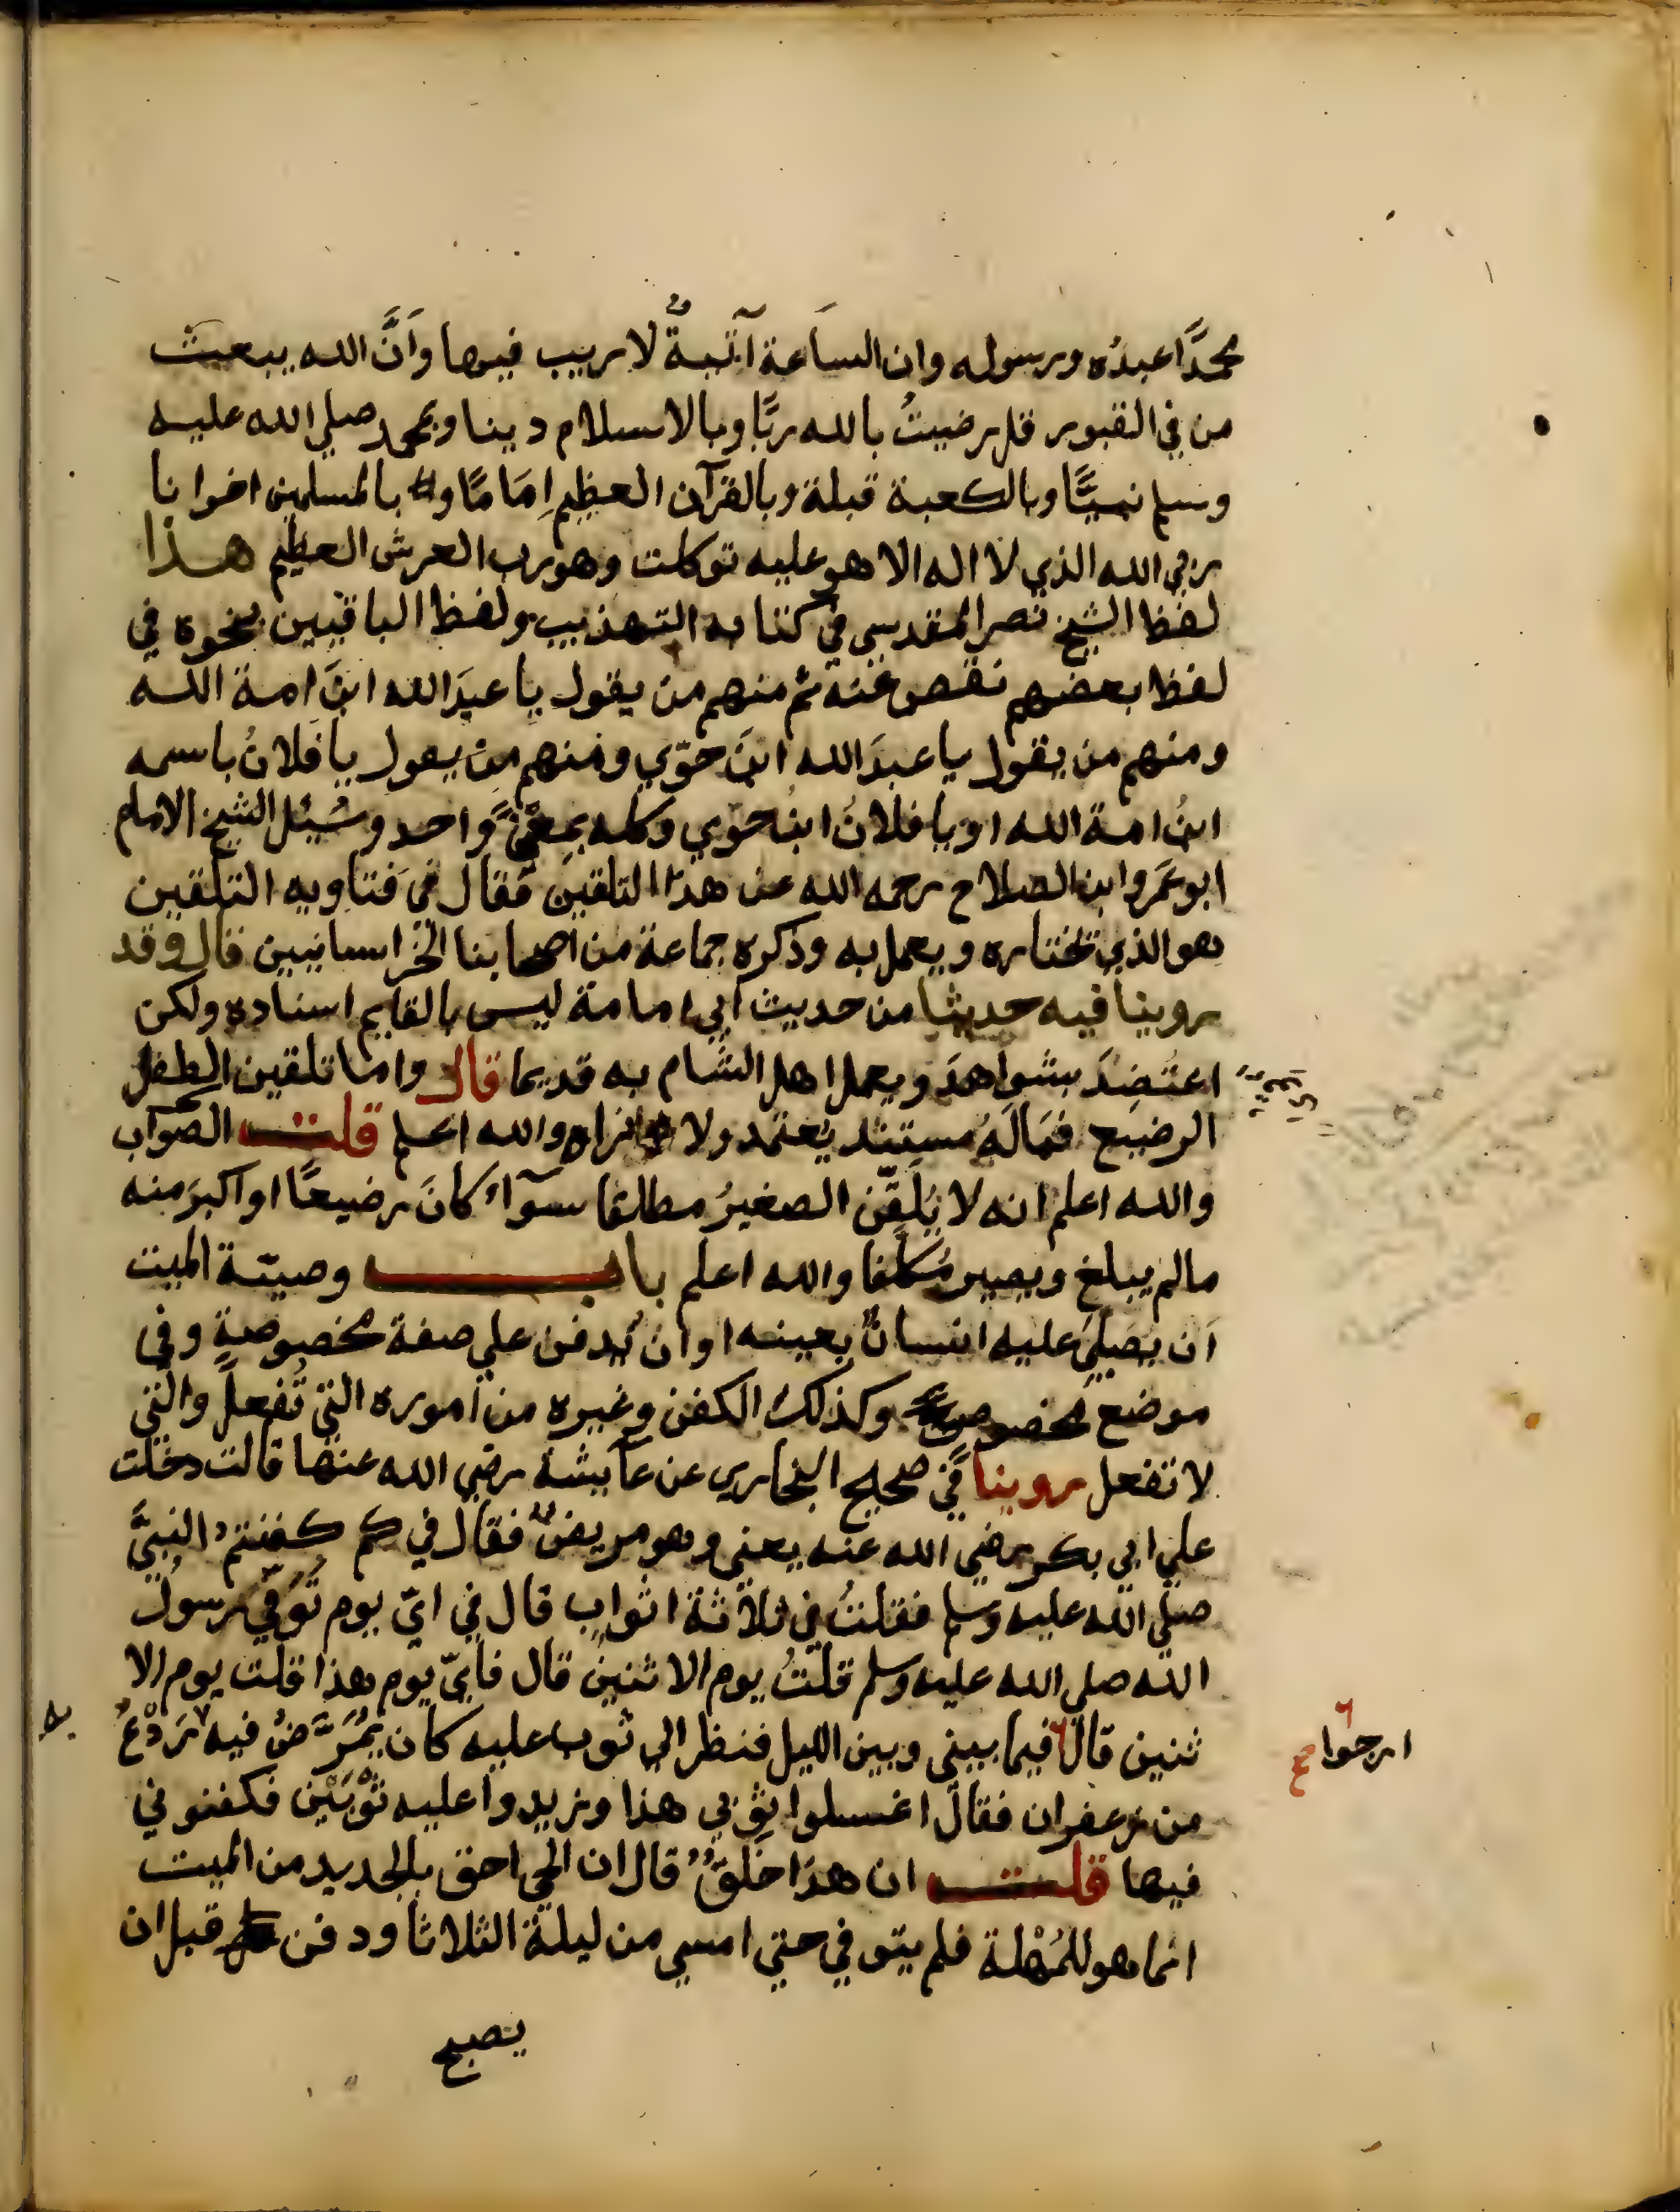 محمدًا عبدُه ورسوله وان الساعة آتيةٌ لا ريب فيها وَأنَّ الله يبعث
من في القبور قل رضيتُ بالله ربًّا وبالاسلام دينا وبمحمد صلي الله عليه
وسلم نبيًّا وبالكعبة قبلة وبالقرآن العظيم اِمَامًا وبالمسلمين اخوانا
ربي الله الذي لا اله الا هو عليه توكلت وهو رب العرش العظيم هذا
لفظ الشيخ نصر المقدسي في كتابه التهذيب ولفظ الباقيين بنحوه في
لفظ بعضهم نقص عنه ثم منهم من يقول يا عبدَ الله ابنَ امة الله
ومنهم من يقول يا عبدَ الله ابنَ حوّي ومنهم من يقول يا فلانُ باسمه
ابنُ امة الله او يا فلانُ ابنُ حوّي وكله بمعنًي واحد وسُئِل الشيخ الامام
ابو عَمرو ابن الصلاح رحمه الله عن هذا التلقين فقال في فتاويه التلقين
هو الذي نختاره ويعمل به وذكره جماعة من اصحابنا الخراسانيين قال وقد
روينا فيه حديثا من حديث ابي امامة ليس بالقايم اسناده ولكن
اعتُضِدَ بشواهدَ وبعمل اهل الشام به قديما قال واما تلقين الطفل
الرضيع فمَا لَهُ مستند يُعتمد ولا نراه والله اعلم قلت الصواب
والله اعلم انه لا يُلَقَّن الصغيرُ مطلقا سوآء كانَ رضيعًا او اكبرَ منه
مالم يبلغ ويصير مُكَلّفا والله اعلم باب وصيّة الميت
اَن يُصَليَ عليه انسانٌ بعينه او ان يُدفن علي صفة مخصوصةٍ وفي
موضع مخصوص وكذلك الكفن وغيره من اموره التي تُفعل والتي
لا تفعل روينا في صحيح البخاري عن عآيشة رضي الله عنها قالت دخلت
علي ابي بكر رضي الله عنه يعني وهو مريضٌ فقال في كم كفنتم النبيَّ
صلي الله عليه وسلم فقلتُ في ثلاثة اثواب قال في ايّ يوم تُوفّي رسولُ
الله صلي الله عليه وسلم قلتُ يوم الاثنين قال فايّ يوم هذا قلت يوم الا
ثنين قال فيما بيني وبين الليل فنظر الي ثوب عليه كان يُمَرَّضُ فيه رَدْعٌ
به
ارجوا
صح
من زعفران فقال اغسلوا ثوبي هذا وزيدوا عليه ثَوْبَيْن فكفنوني
فيها قلت ان هذا خَلَقٌ قال ان الحي احق بالجديد من الميت
انما هو للمُهْلة فلم يتوفي حتي امسي من ليلة الثلاثا ودفن قبل ان
يصبح